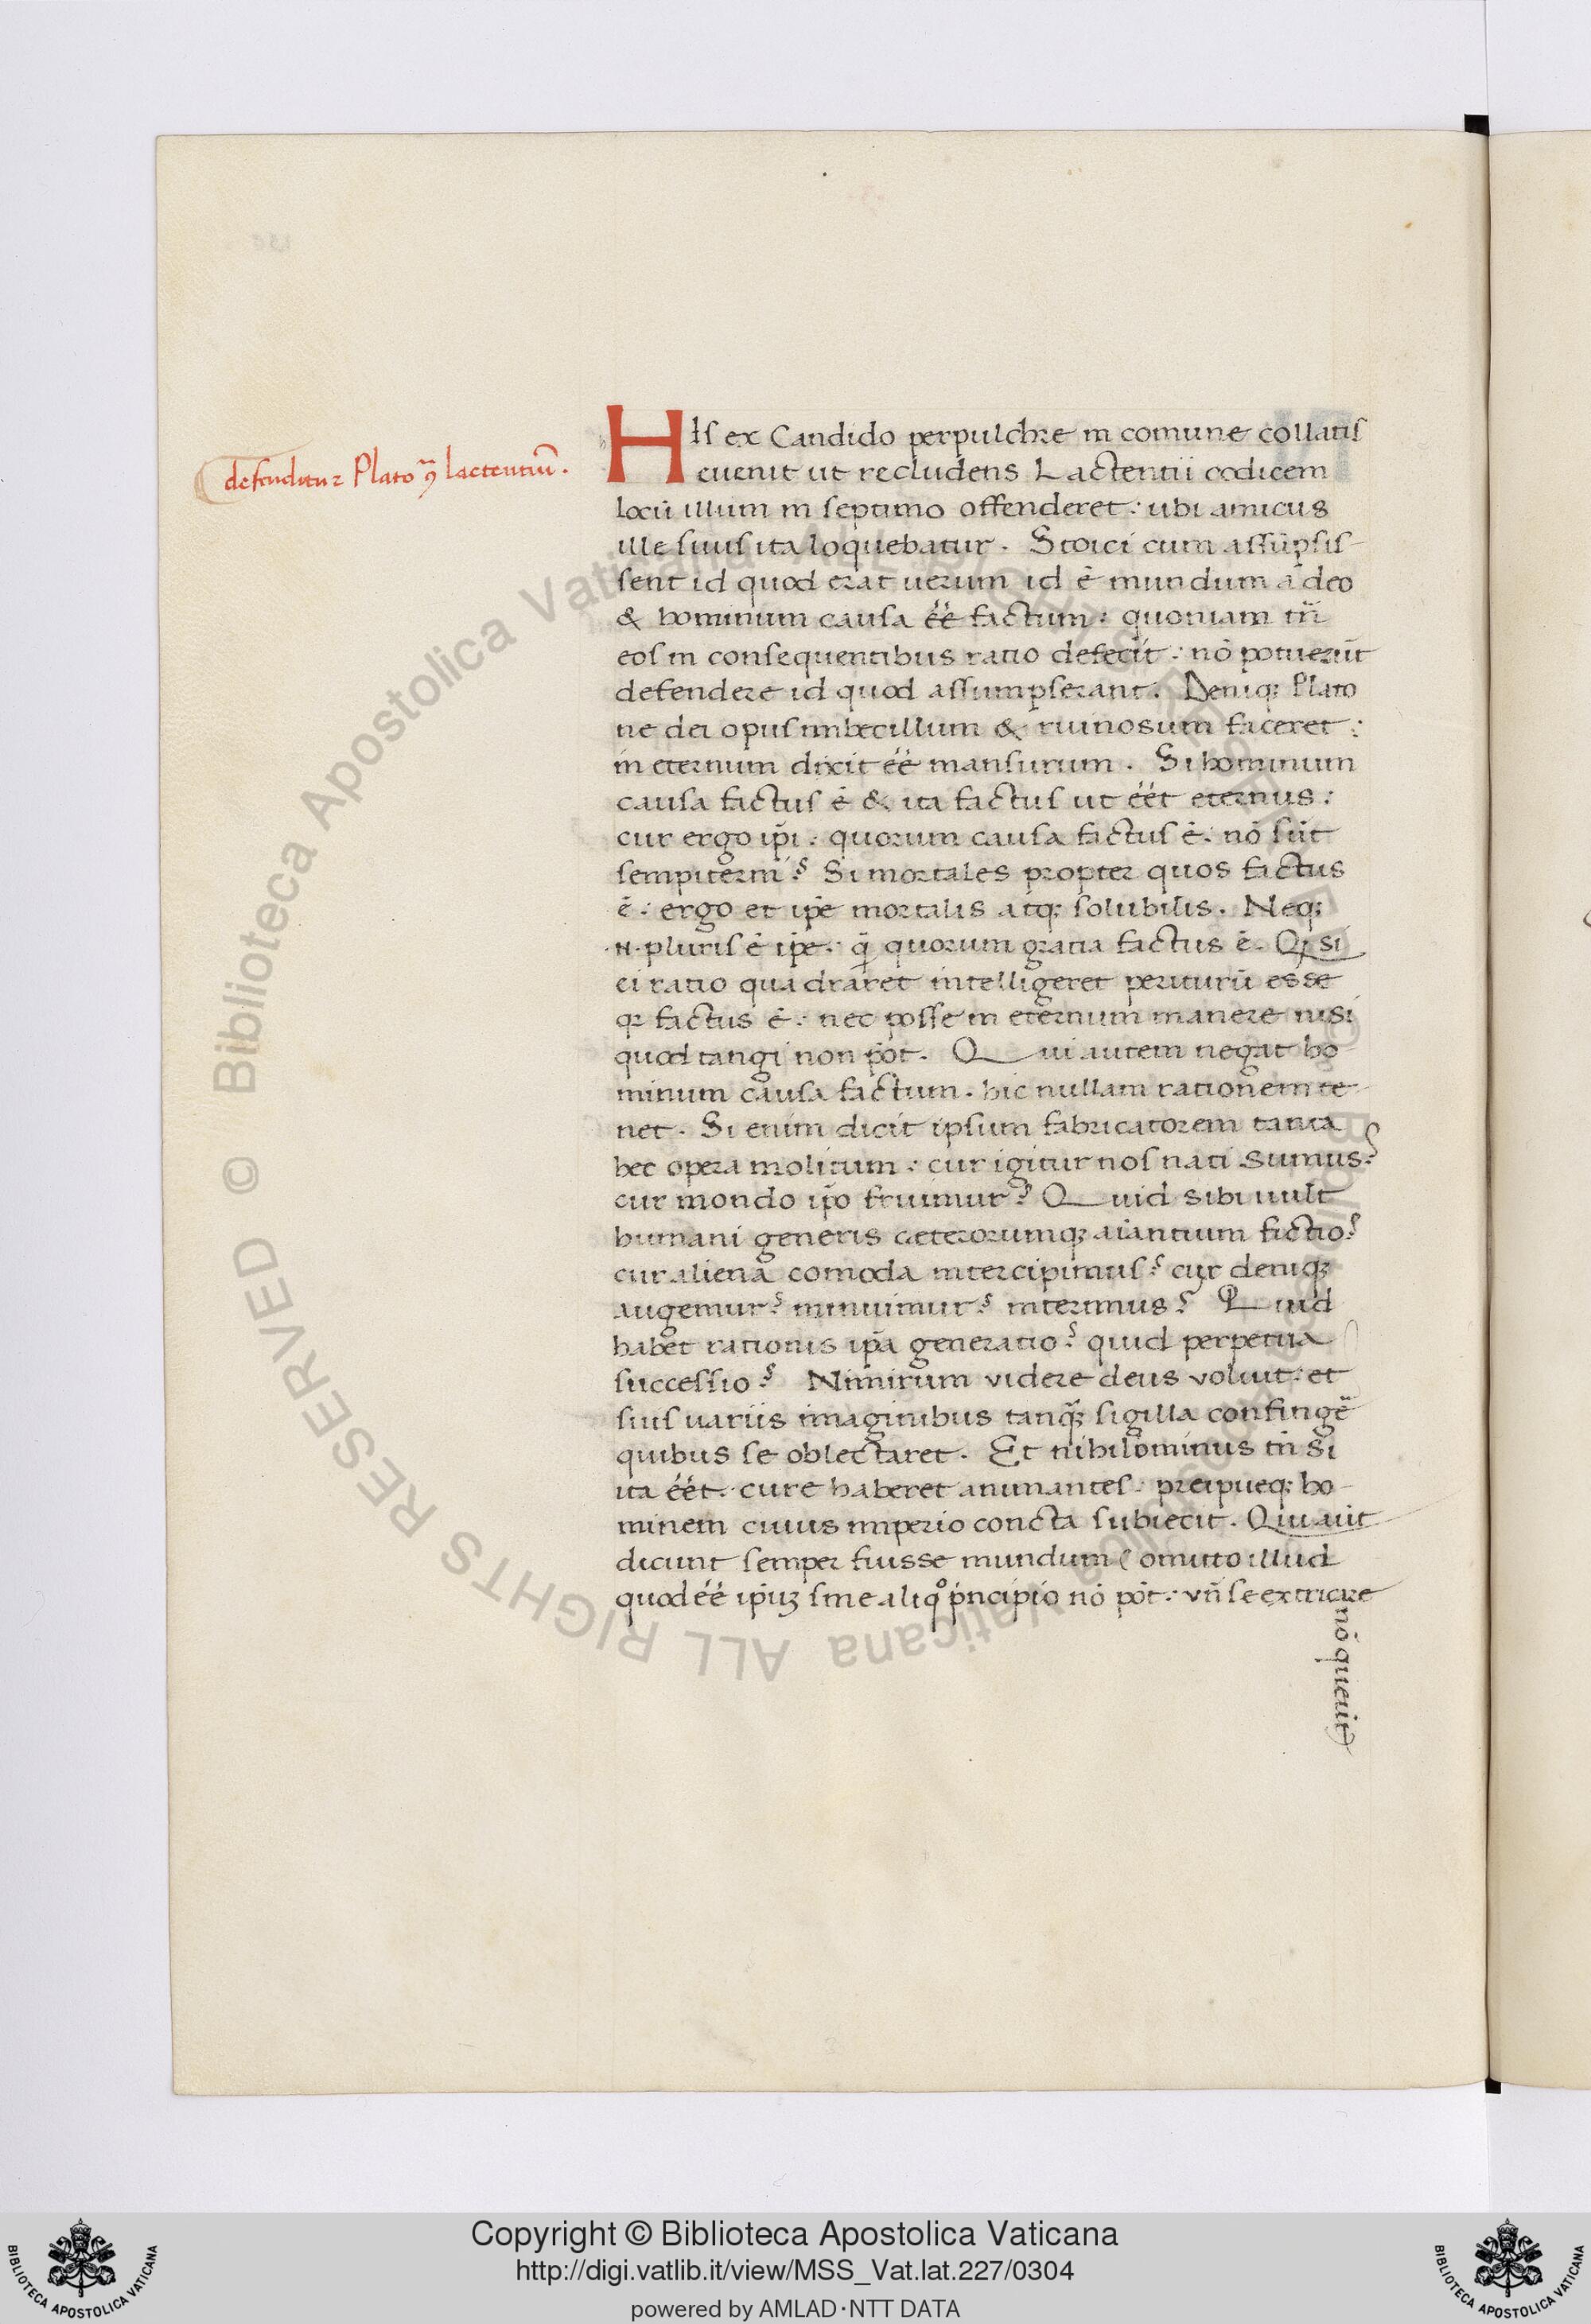 defenditur Plato ꝯ̃ lactentiũ.
HIs ex Candido perpulchre in comune collatis
euenit ut recludens Lactentii codicem
locũ illum in septimo offenderet: ubi amicus
ille suus ita loquebatur. Stoici cum assũpsis-
sent id quod erat uerum id ē mundum a deo
& hominum causa éé factum: quoniam tñ
eos in consequentibus ratio defecit: nō potuerũt
defendere id quod assumpserant. Deniqꝫ Plato
ne dei opus imbecillum & ruinosum faceret:
in eternum dixit éé mansurum. Si hominum
causa factus ē & ita factus ut éét eternus:
cur ergo ip̄i: quorum causa factus ē: nō sũt
sempiterni? Si mortales propter quos factus
ē: ergo et ip̄e mortalis atqꝫ solubilis. Neqꝫ
.n. pluris ē ip̄e: q̄ quorum gratia factus ē. Qꝫ si
ei ratio quadraret intelligeret periturũ esse
qꝛ factus ē: nec posse in eternum manere nisi
quod tangi non pōt. Qui autem negat ho-
minum causa factum. hic nullam rationem te-
net. Si enim dicit ipsum fabricatorem tanta
hec opera molitum: cur igitur nos nati sumus?
cur mondo ip̄o fruimur? Quid sibi uult
humani generis ceterorumqꝫ aīantium fictio?
cur aliena comoda intercipimus? cur deniqꝫ
augemur? minuimur? interimus? Quid
habet rationis ip̄a generatio? quid perpetua
successio? Nimirum videre deus voluit: et
suis uariis imaginibus tanqꝫ̃ sigilla confingē
quibus se oblectaret. Et nihilominus tñ si
ita éét. cure haberet animantes. precipueqꝫ ho-
minem cuius imperio concta subiecit. Qui aũt
dicunt semper fuisse mundum (omitto illud
quod éé ip̄uꝫ sine aliqͦ pͥncipio nō pōt: vñ se extricare
nō queũt)
Copyright © Biblioteca Apostolica Vaticana
http://digi.vatlib.it/view/MSS_Vat.lat.227/0304
powered by AMLAD·NTT DATA
© Biblioteca Apostolica Vaticana ALL RIGHTS RESERVED
BIBLIOTECA APOSTOLICA VATICANA
BIBLIOTECA APOSTOLICA VATICANA